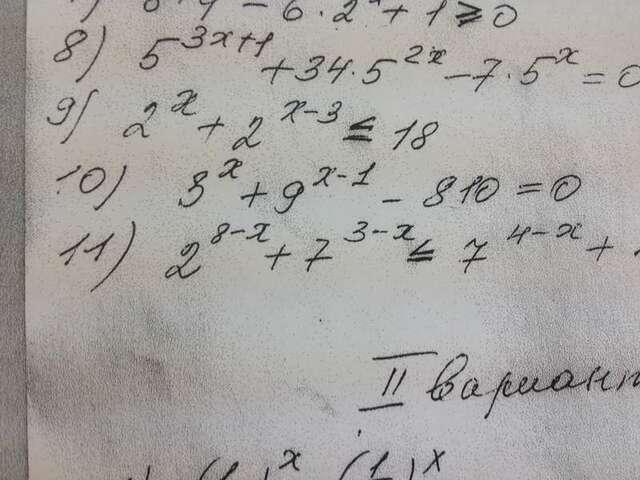 6·2ˣ + 1 ≥ 0
8) 5^(3x+1) + 34·5^(2x) − 7·5^x = 0
9) 2^x + 2^(x−3) ≤ 18
10) 3^x + 9^(x−1) − 810 = 0
11) 2^(8−x) + 7^(3−x) ≤ 7^(4−x) +
II вариант